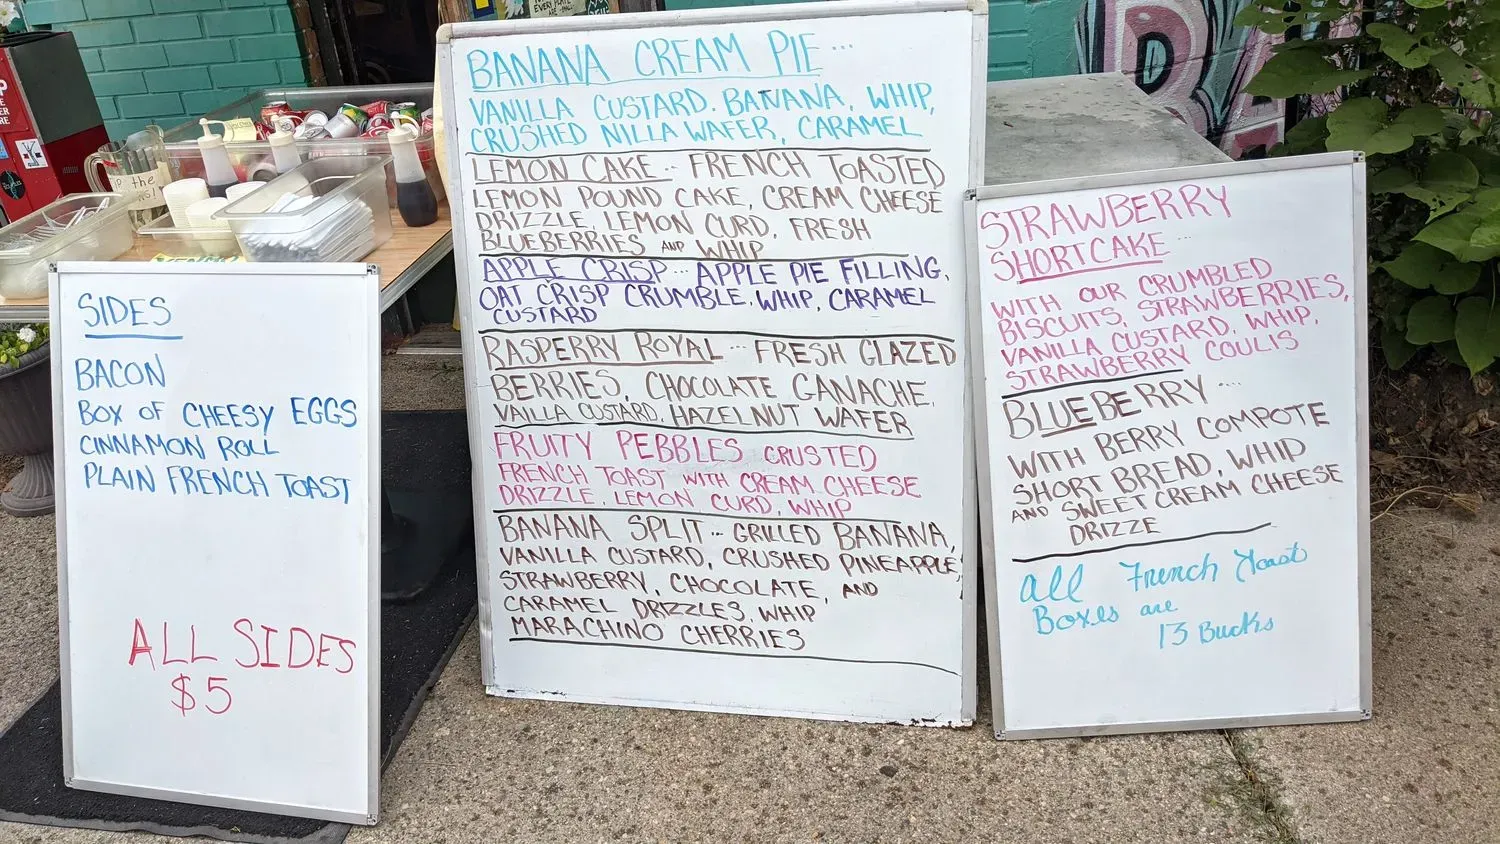 SIDES
BACON
BOX OF CHEESY EGGS
CINNAMON ROLL
PLAIN FRENCH TOAST
ALL SIDES
$5
BANANA CREAM PIE...
VANILLA CUSTARD, BANANA, WHIP,
CRUSHED NILLA WAFER, CARAMEL
LEMON CAKE.. FRENCH TOASTED
LEMON POUND CAKE, CREAM CHEESE
DRIZZLE, LEMON CURD, FRESH
BLUEBERRIES AND WHIP
APPLE CRISP... APPLE PIE FILLING,
OAT CRISP CRUMBLE, WHIP, CARAMEL
CUSTARD
RASPERRY ROYAL... FRESH GLAZED
BERRIES, CHOCOLATE GANACHE,
VAILLA CUSTARD, HAZELNUT WAFER
FRUITY PEBBLES CRUSTED
FRENCH TOAST WITH CREAM CHEESE
DRIZZLE, LEMON CURD, WHIP
BANANA SPLIT... GRILLED BANANA,
VANILLA CUSTARD, CRUSHED PINEAPPLE,
STRAWBERRY, CHOCOLATE, AND
CARAMEL DRIZZLES, WHIP
MARACHINO CHERRIES
STRAWBERRY
SHORTCAKE...
WITH OUR CRUMBLED
BISCUITS, STRAWBERRIES,
VANILLA CUSTARD, WHIP,
STRAWBERRY COULIS
BLUEBERRY....
WITH BERRY COMPOTE
SHORT BREAD, WHIP
AND SWEET CREAM CHEESE
DRIZZE
All French Toast
Boxes are
13 Bucks